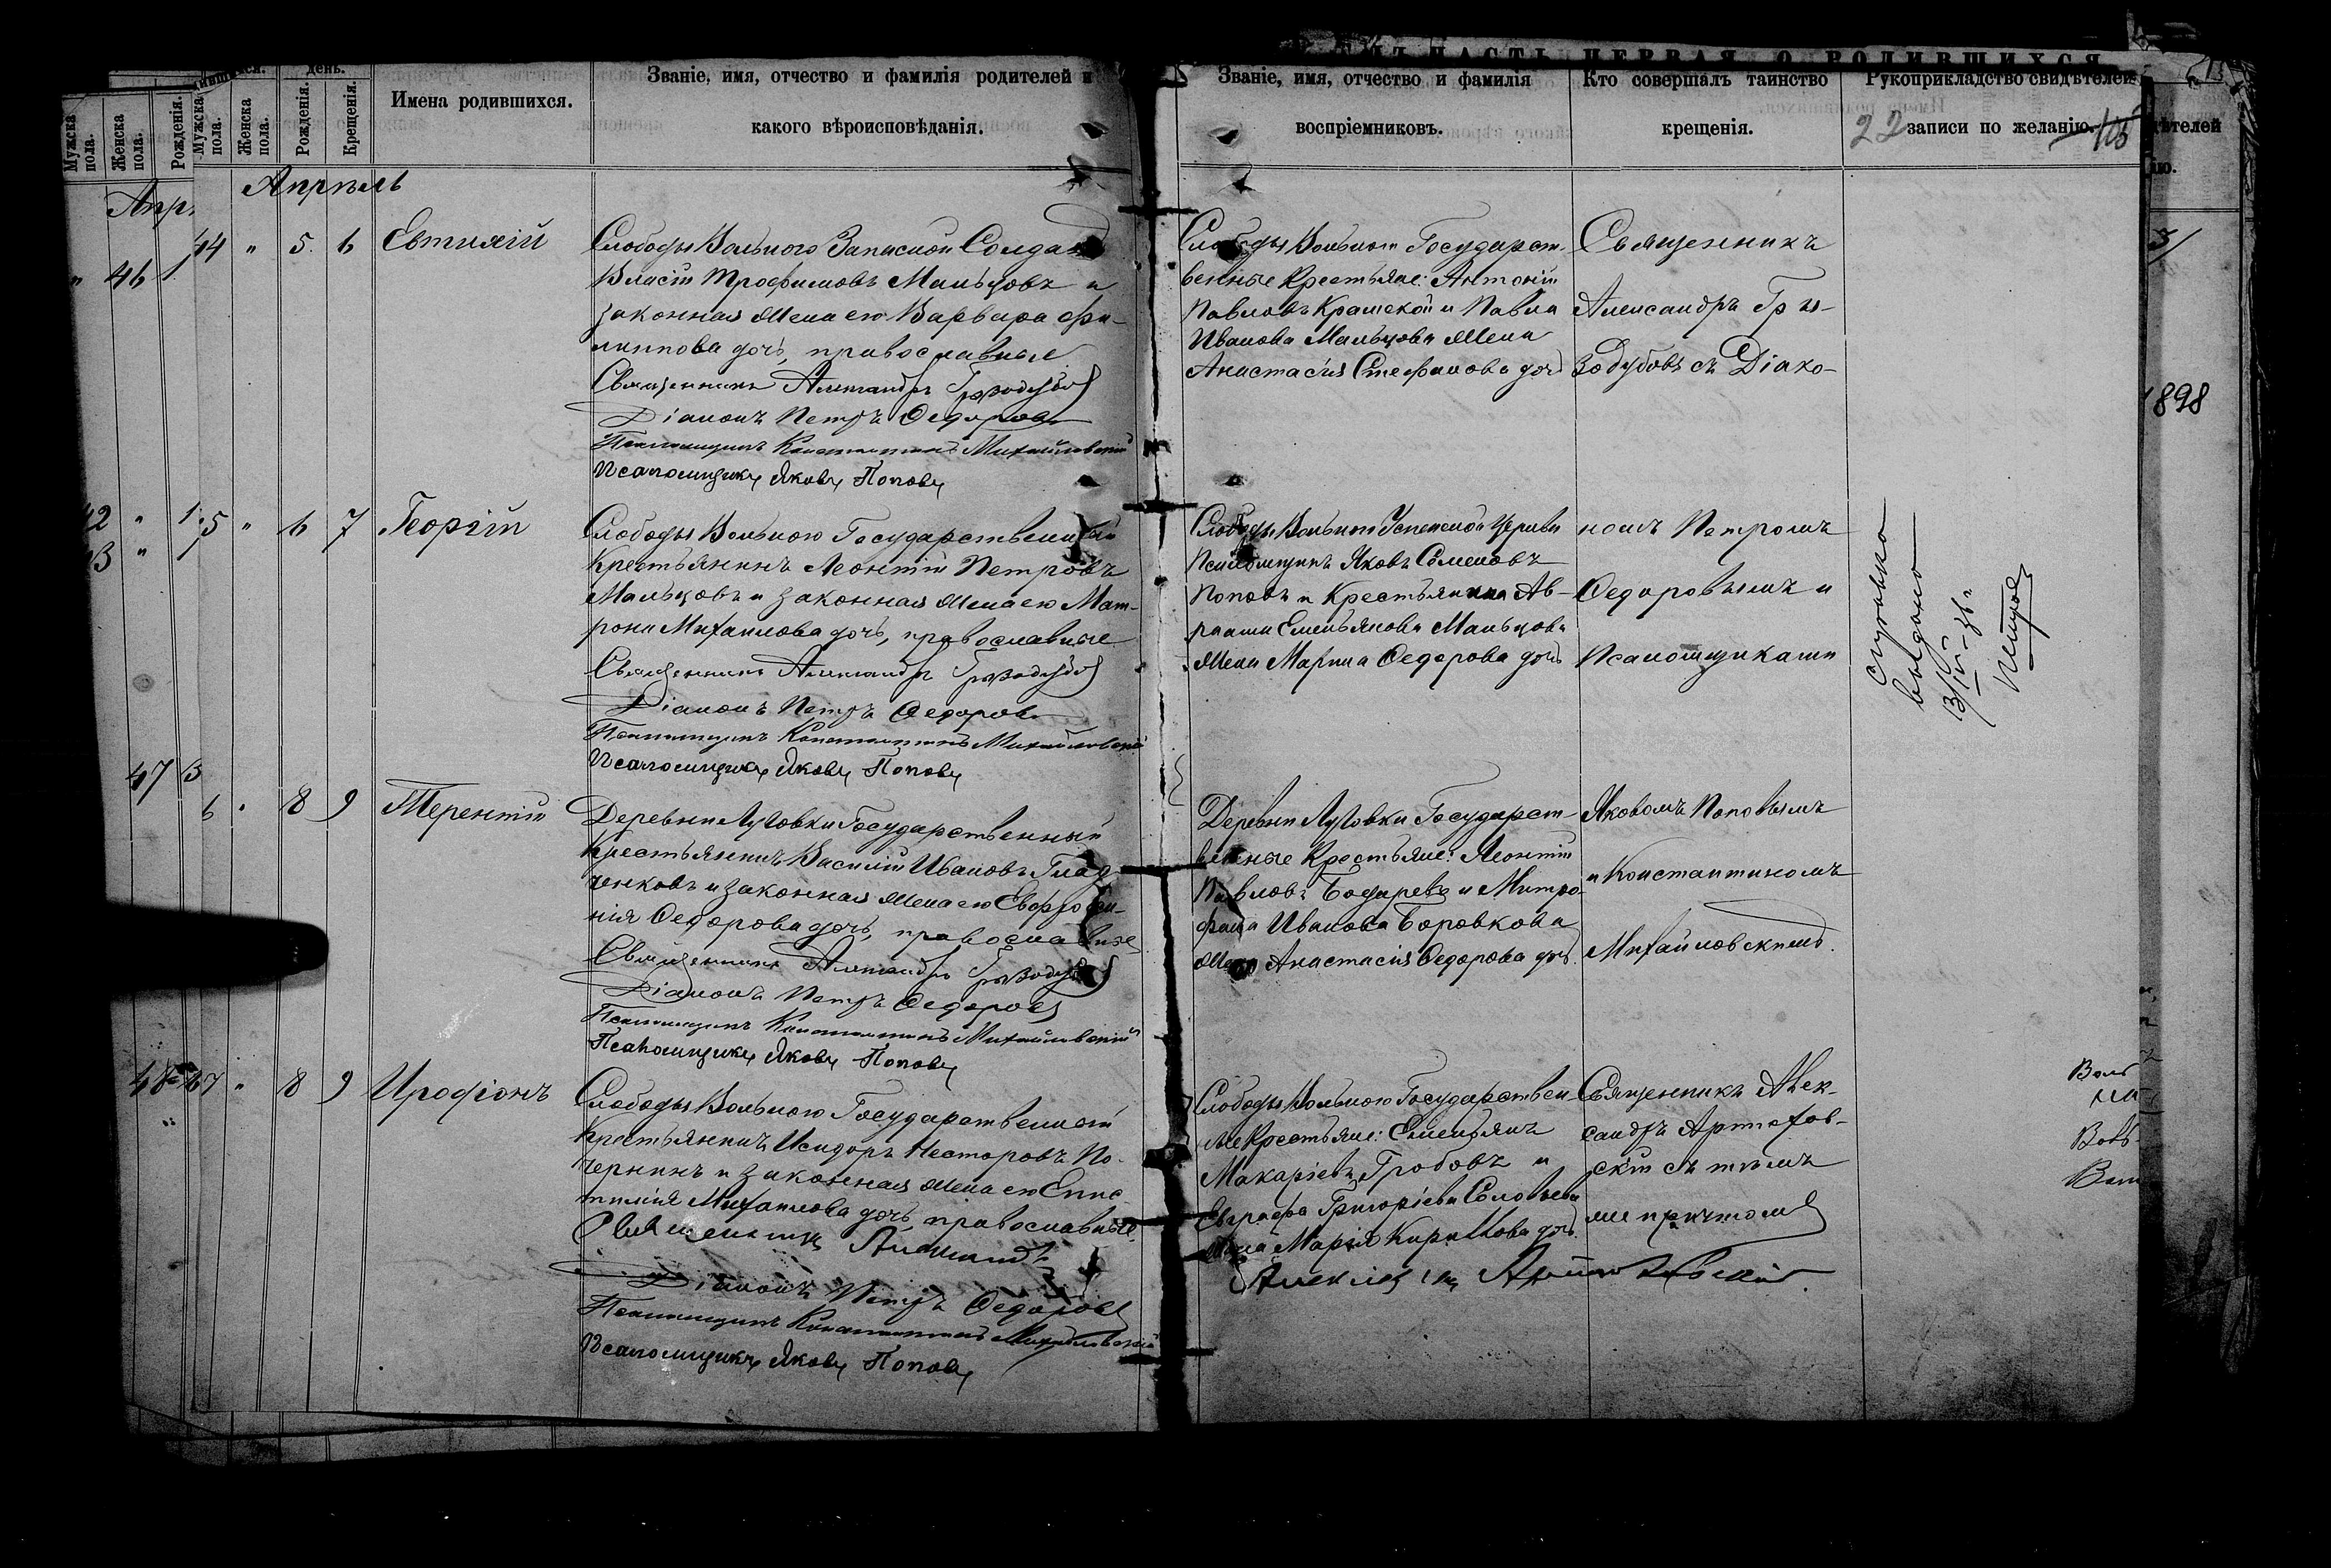 ЧАСТЬ ПЕРВАЯ О РОДИВШИХСЯ
Мужска пола.
Женска пола.
Рожденія.
Мужска пола.
Женска пола.
день.
Рожденія.
Крещенія.
Имена родившихся.
Званіе, имя, отчество и фамилія родителей и
какого вѣроисповѣданія.
Званіе, имя, отчество и фамилія
воспріемниковъ.
Кто совершалъ таинство
крещенія.
Рукоприкладство свидѣтелей
22 записи по желанію.
дѣтелей
ію.
Апрѣль
44 " 5 6 Евтихій
Слободы Вольного Запасной Солдатъ
Власій Трофимовъ Мальцовъ и
законная жена его Варвара Фи-
липпова дочь, православные
Священникъ Александръ Грызодубовъ
Діаконъ Петръ Ѳедоровъ
Псаломщикъ Константинъ Михайловскій
Псаломщикъ Яковъ Поповъ
Слободы Вольного Государст-
венные Крестьяне: Антоній
Павловъ Крамской и Павла
Иванова Мальцова жена
Анастасія Стефанова дочь
Священникъ
Александръ Гры-
зодубовъ съ Діако-
46
1898
5 " 6 7 Георгій
Слободы Вольного Государственный
Крестьянинъ Леонтій Петровъ
Мальцовъ и законная жена его Мат-
рона Михаилова дочь, православные
Священникъ Александръ Грызодубовъ
Діаконъ Петръ Ѳедоровъ
Псаломщикъ Константинъ Михайловскій
Псаломщикъ Яковъ Поповъ
Слободы Вольного Успенской Церкви
Псаломщикъ Яковъ Семеновъ
Поповъ и Крестьянина Ав-
раама Емельянова Мальцова
жена Марина Ѳедорова дочь
номъ Петромъ
Ѳедоровымъ и
Псаломщиками
справка
выдана
Петров
47
6 " 8 9 Терентій
Деревни Луговки Государственный
Крестьянинъ Василій Ивановъ Глад-
ченковъ и законная жена его Евфроси-
нія Ѳедорова дочь, православные
Священникъ Александръ Грызодубовъ
Діаконъ Петръ Ѳедоровъ
Псаломщикъ Константинъ Михайловскій
Псаломщикъ Яковъ Поповъ
Деревни Луговки Государст-
венные Крестьяне: Леонтій
Павловъ Бочаревъ и Митро-
фана Иванова Боровкова
жена Анастасія Ѳедорова дочь.
Яковомъ Поповымъ
и Константиномъ
Михайловскимъ.
48
7 " 8 9 Иродіонъ
Слободы Вольного Государственный
Крестьянинъ Исидоръ Несторовъ По-
чернинъ и законная жена его Епис-
тимія Михаилова дочь, православные.
Священникъ Александръ
Діаконъ Петръ Ѳедоровъ
Псаломщикъ Константинъ Михайловскій
Псаломщикъ Яковъ Поповъ
Слободы Вольного Государствен-
ные Крестьяне: Емельянъ
Макаріевъ Гробовъ и
Евграфа Григоріева Соловьева
жена Марія Кирилова дочь.
Священникъ Алек-
сандръ Артюхов-
скій съ тѣмъ
же причтомъ
Александръ Артюховскій